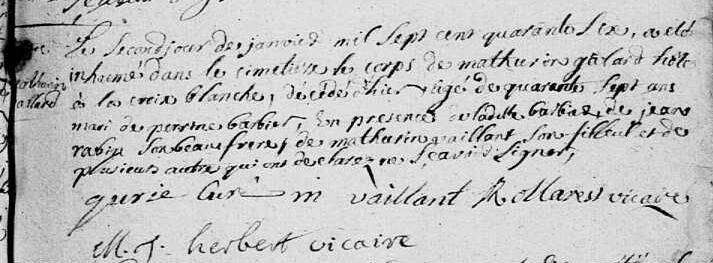 Le second jour de janvier mil sept cent quarante six, a eté
inhumé dans le cimetiere le corps de mathurin galard hôte
à la croix blanche, decédé d'hier agé de quarante sept ans
mari de perrine barbier, en presence de ladite barbier, de jean
rabin son beaufrere, de mathurin vaillant son filleul et de
plusieurs autre qui ont declaré ne sçavoir signer,
curé m vaillant vicaire
M. J. herbert vicaire